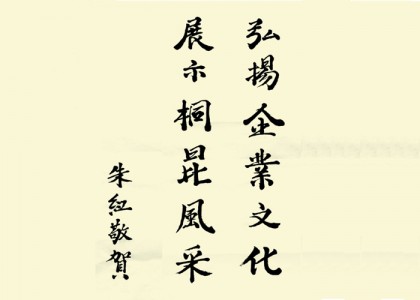 弘揚企業文化
展示桐昆風采
朱紅敬賀